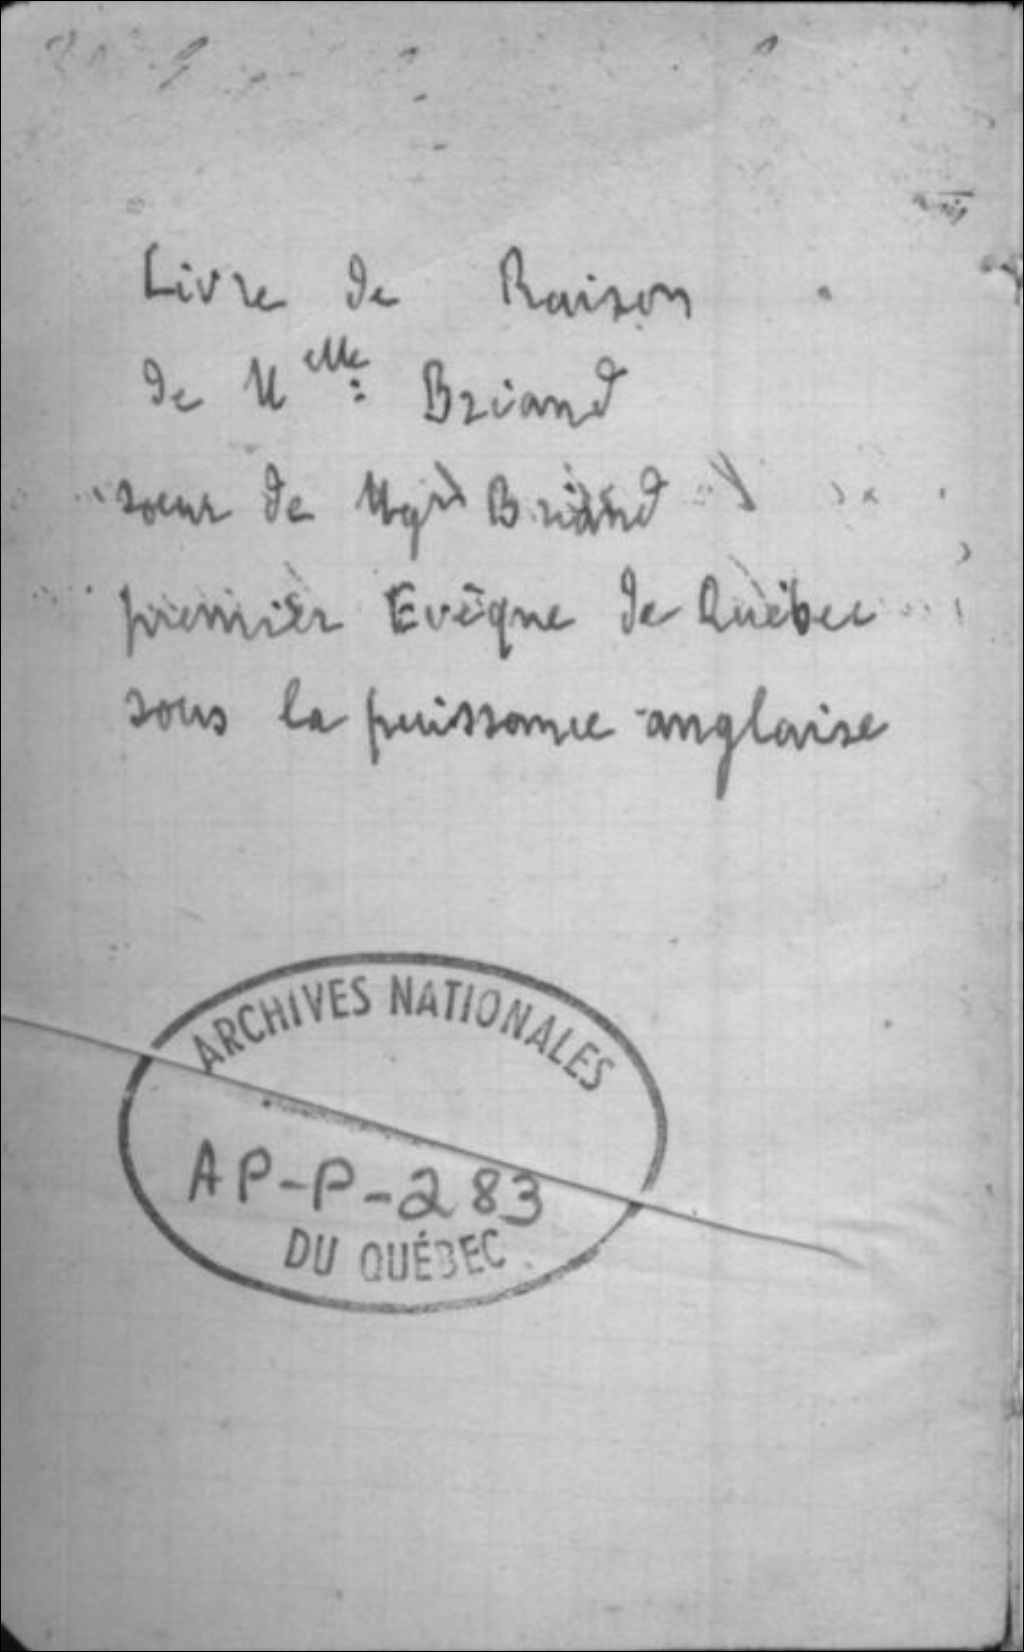 Livre de Raison
de Melle: Briand
soeur de Mgr Briand
premier Evêque de Québec
sous la puissance anglaise
ARCHIVES NATIONALES
AP-P-283
DU QUÉBEC